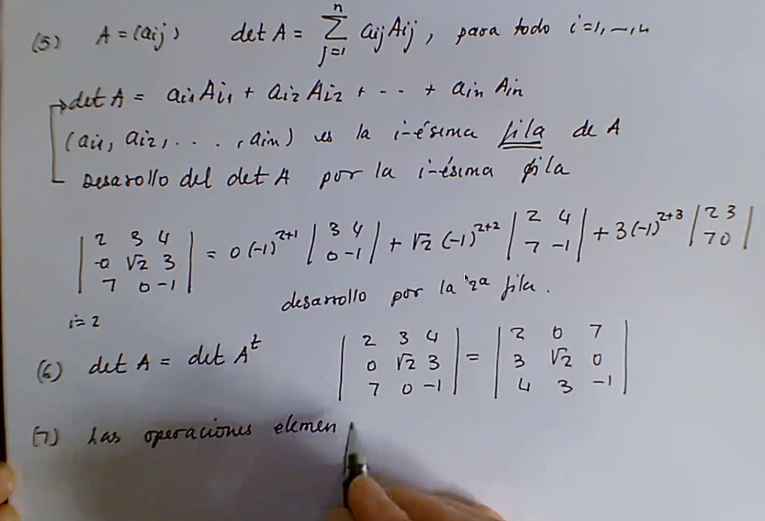 (5) A = (aij) det A = n∑j=1 aij Aij, para todo i=1,...,n
det A = ai1 Ai1 + ai2 Ai2 + ... + ain Ain
(ai1, ai2, ..., ain) es la i-ésima fila de A
Desarollo del det A por la i-ésima fila
| 2 3 4 | = 0 (-1)^2+1 | 3 4 | + √2 (-1)^2+2 | 2 4 | + 3 (-1)^2+3 | 2 3 |
| 0 √2 3 | | 0 -1 | | 7 -1 | | 7 0 |
| 7 0 -1 |
i=2 desarollo por la 2ª fila.
(6) det A = det A^t | 2 3 4 | = | 2 0 7 |
| 0 √2 3 | | 3 √2 0 |
| 7 0 -1 | | 4 3 -1 |
(7) Las operaciones elemen